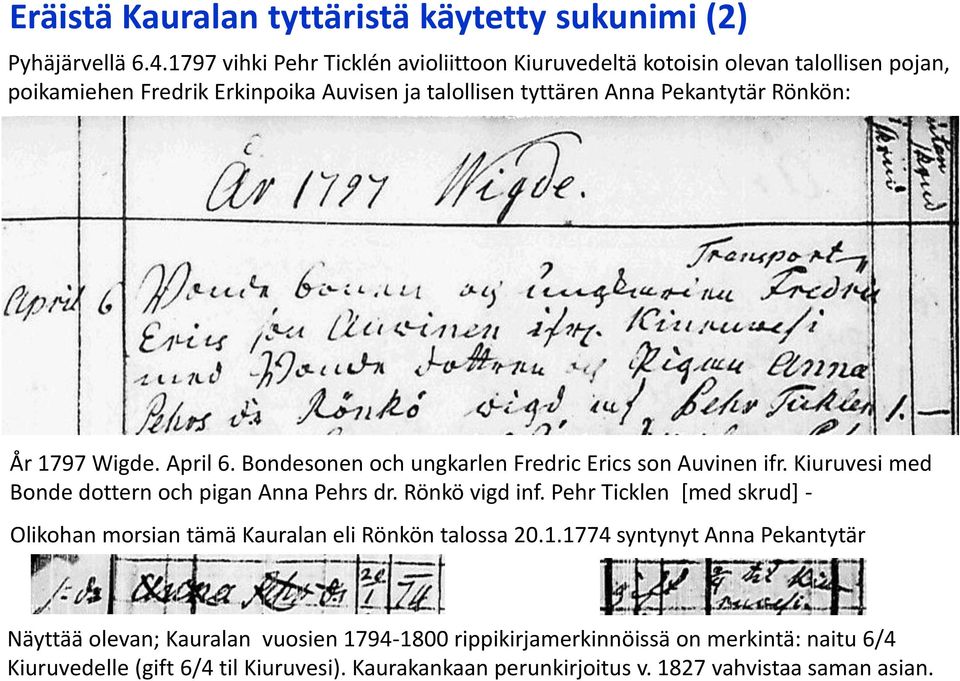 Eräistä Kauralan tyttäristä käytetty sukunimi (2)
Pyhäjärvellä 6.4.1797 vihki Pehr Ticklén avioliittoon Kiuruvedeltä kotoisin olevan talollisen pojan,
poikamiehen Fredrik Erkinpoika Auvisen ja talollisen tyttären Anna Pekantytär Rönkön:
År 1797 Wigde.
Transport
April 6 Bonde sonen och ungkarlen Fredric
Erics son Auvinen ifr. Kiuruvesi
med Bonde dottren och Pigan Anna
Pehrs dr Rönkö vigd inf Pehr Ticklen 1. —
År 1797 Wigde. April 6. Bondesonen och ungkarlen Fredric Erics son Auvinen ifr. Kiuruvesi med
Bonde dottern och pigan Anna Pehrs dr. Rönkö vigd inf. Pehr Ticklen [med skrud] -
Olikohan morsian tämä Kauralan eli Rönkön talossa 20.1.1774 syntynyt Anna Pekantytär
Anna Pehrs dr 20/1 74 gift 6/4 til Kiu
ruvesi.
Näyttää olevan; Kauralan vuosien 1794-1800 rippikirjamerkinnöissä on merkintä: naitu 6/4
Kiuruvedelle (gift 6/4 til Kiuruvesi). Kaurakankaan perunkirjoitus v. 1827 vahvistaa saman asian.